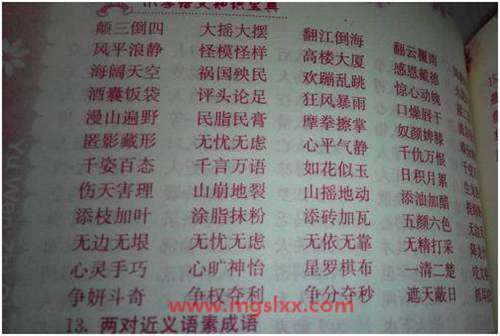 小学语文知识宝典
颠三倒四 大摇大摆 翻江倒海 翻云覆雨
风平浪静 怪模怪样 高楼大厦 感恩戴德
海阔天空 祸国殃民 欢蹦乱跳 惊心动魄
酒囊饭袋 评头论足 狂风暴雨 口燥唇干
漫山遍野 民脂民膏 摩拳擦掌 奴颜婢膝
匿影藏形 无忧无虑 心平气静 千仇万恨
千姿百态 千言万语 如花似玉 日积月累
伤天害理 山崩地裂 山摇地动 添油加醋
添枝加叶 涂脂抹粉 添砖加瓦 五颜六色
无边无垠 无忧无虑 无依无靠 无精打采
心灵手巧 心旷神怡 星罗棋布 一清二楚
争妍斗奇 争权夺利 争分夺秒 遮天蔽日
www.mgslxx.com
13. 两对近义语素成语